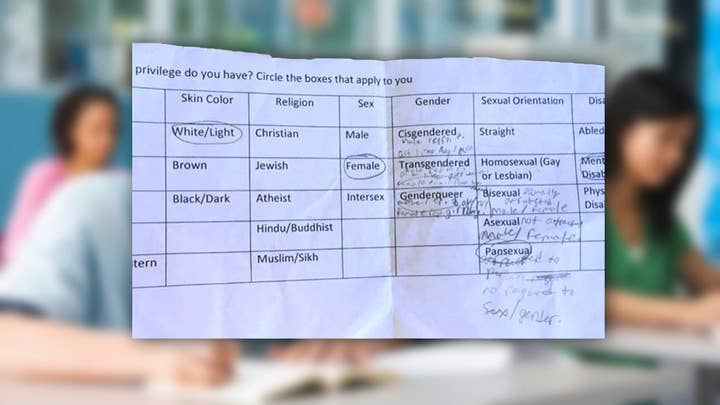 privilege do you have? Circle the boxes that apply to you
Skin Color Religion Sex Gender Sexual Orientation Disa
White/Light Christian Male Cisgendered Straight Abled
Brown Jewish Female Transgendered Homosexual (Gay Ment
or Lesbian) Disab
Black/Dark Atheist Intersex Genderqueer Bisexual Phys
male/female Disa
Hindu/Buddhist Asexual not
male/female
tern Muslim/Sikh Pansexual
to
no regard to
Sex/gender.